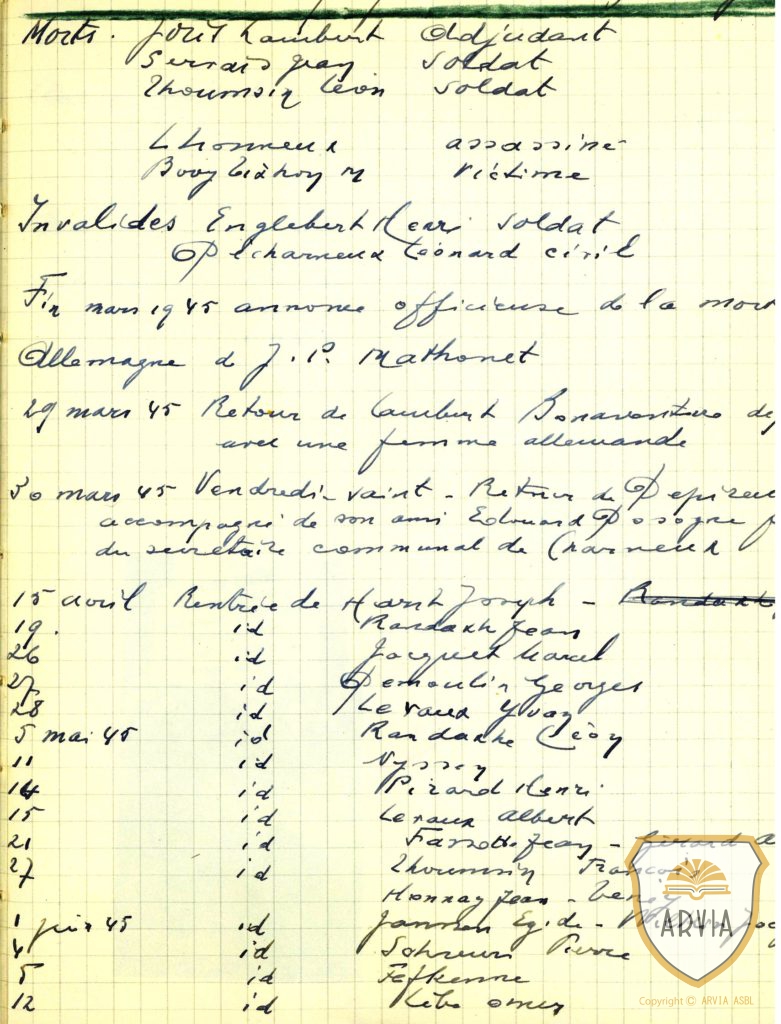 Morts. Joris Lambert Adjudant
Servais Jean Soldat
Thoumsin Léon Soldat
Lhonneux assassiné
Bovy M victime
Invalides Englebert Henri Soldat
Decharneux Léonard civil
Fin mars 1945 annonce officieuse de la mort
Allemagne de J. P. Mathonet
29 mars 45 Retour de Lambert Bonaventure
avec une femme allemande
30 mars 45 Vendredi-saint - Retour de
accompagné de son ami Edouard Dosogne
du secrétaire communal de Charneux
15 avril Rentrée de Joseph - Randaxhe
19. id Randaxhe Jean
26 id Jacquet Marcel
27 id Demoulin Georges
28 id Levaux Yvan
5 mai 45 id Randaxhe Léon
11 id Nyssen
14 id Pirard Henri
15 id Levaux Albert
21 id Fassotte Jean - Girard
27 id Thoumsin François
Honnay Jean -
1 juin 45 id Janssen Egide -
4 id Schreurs Pierre
5 id
12 id
ARVIA
Copyright © ARVIA ASBL